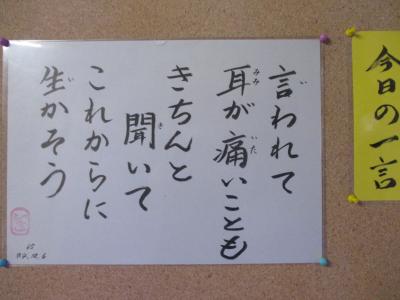 今日の一言
言われて
耳が痛いことも
きちんと
聞いて
これからに
生かそう